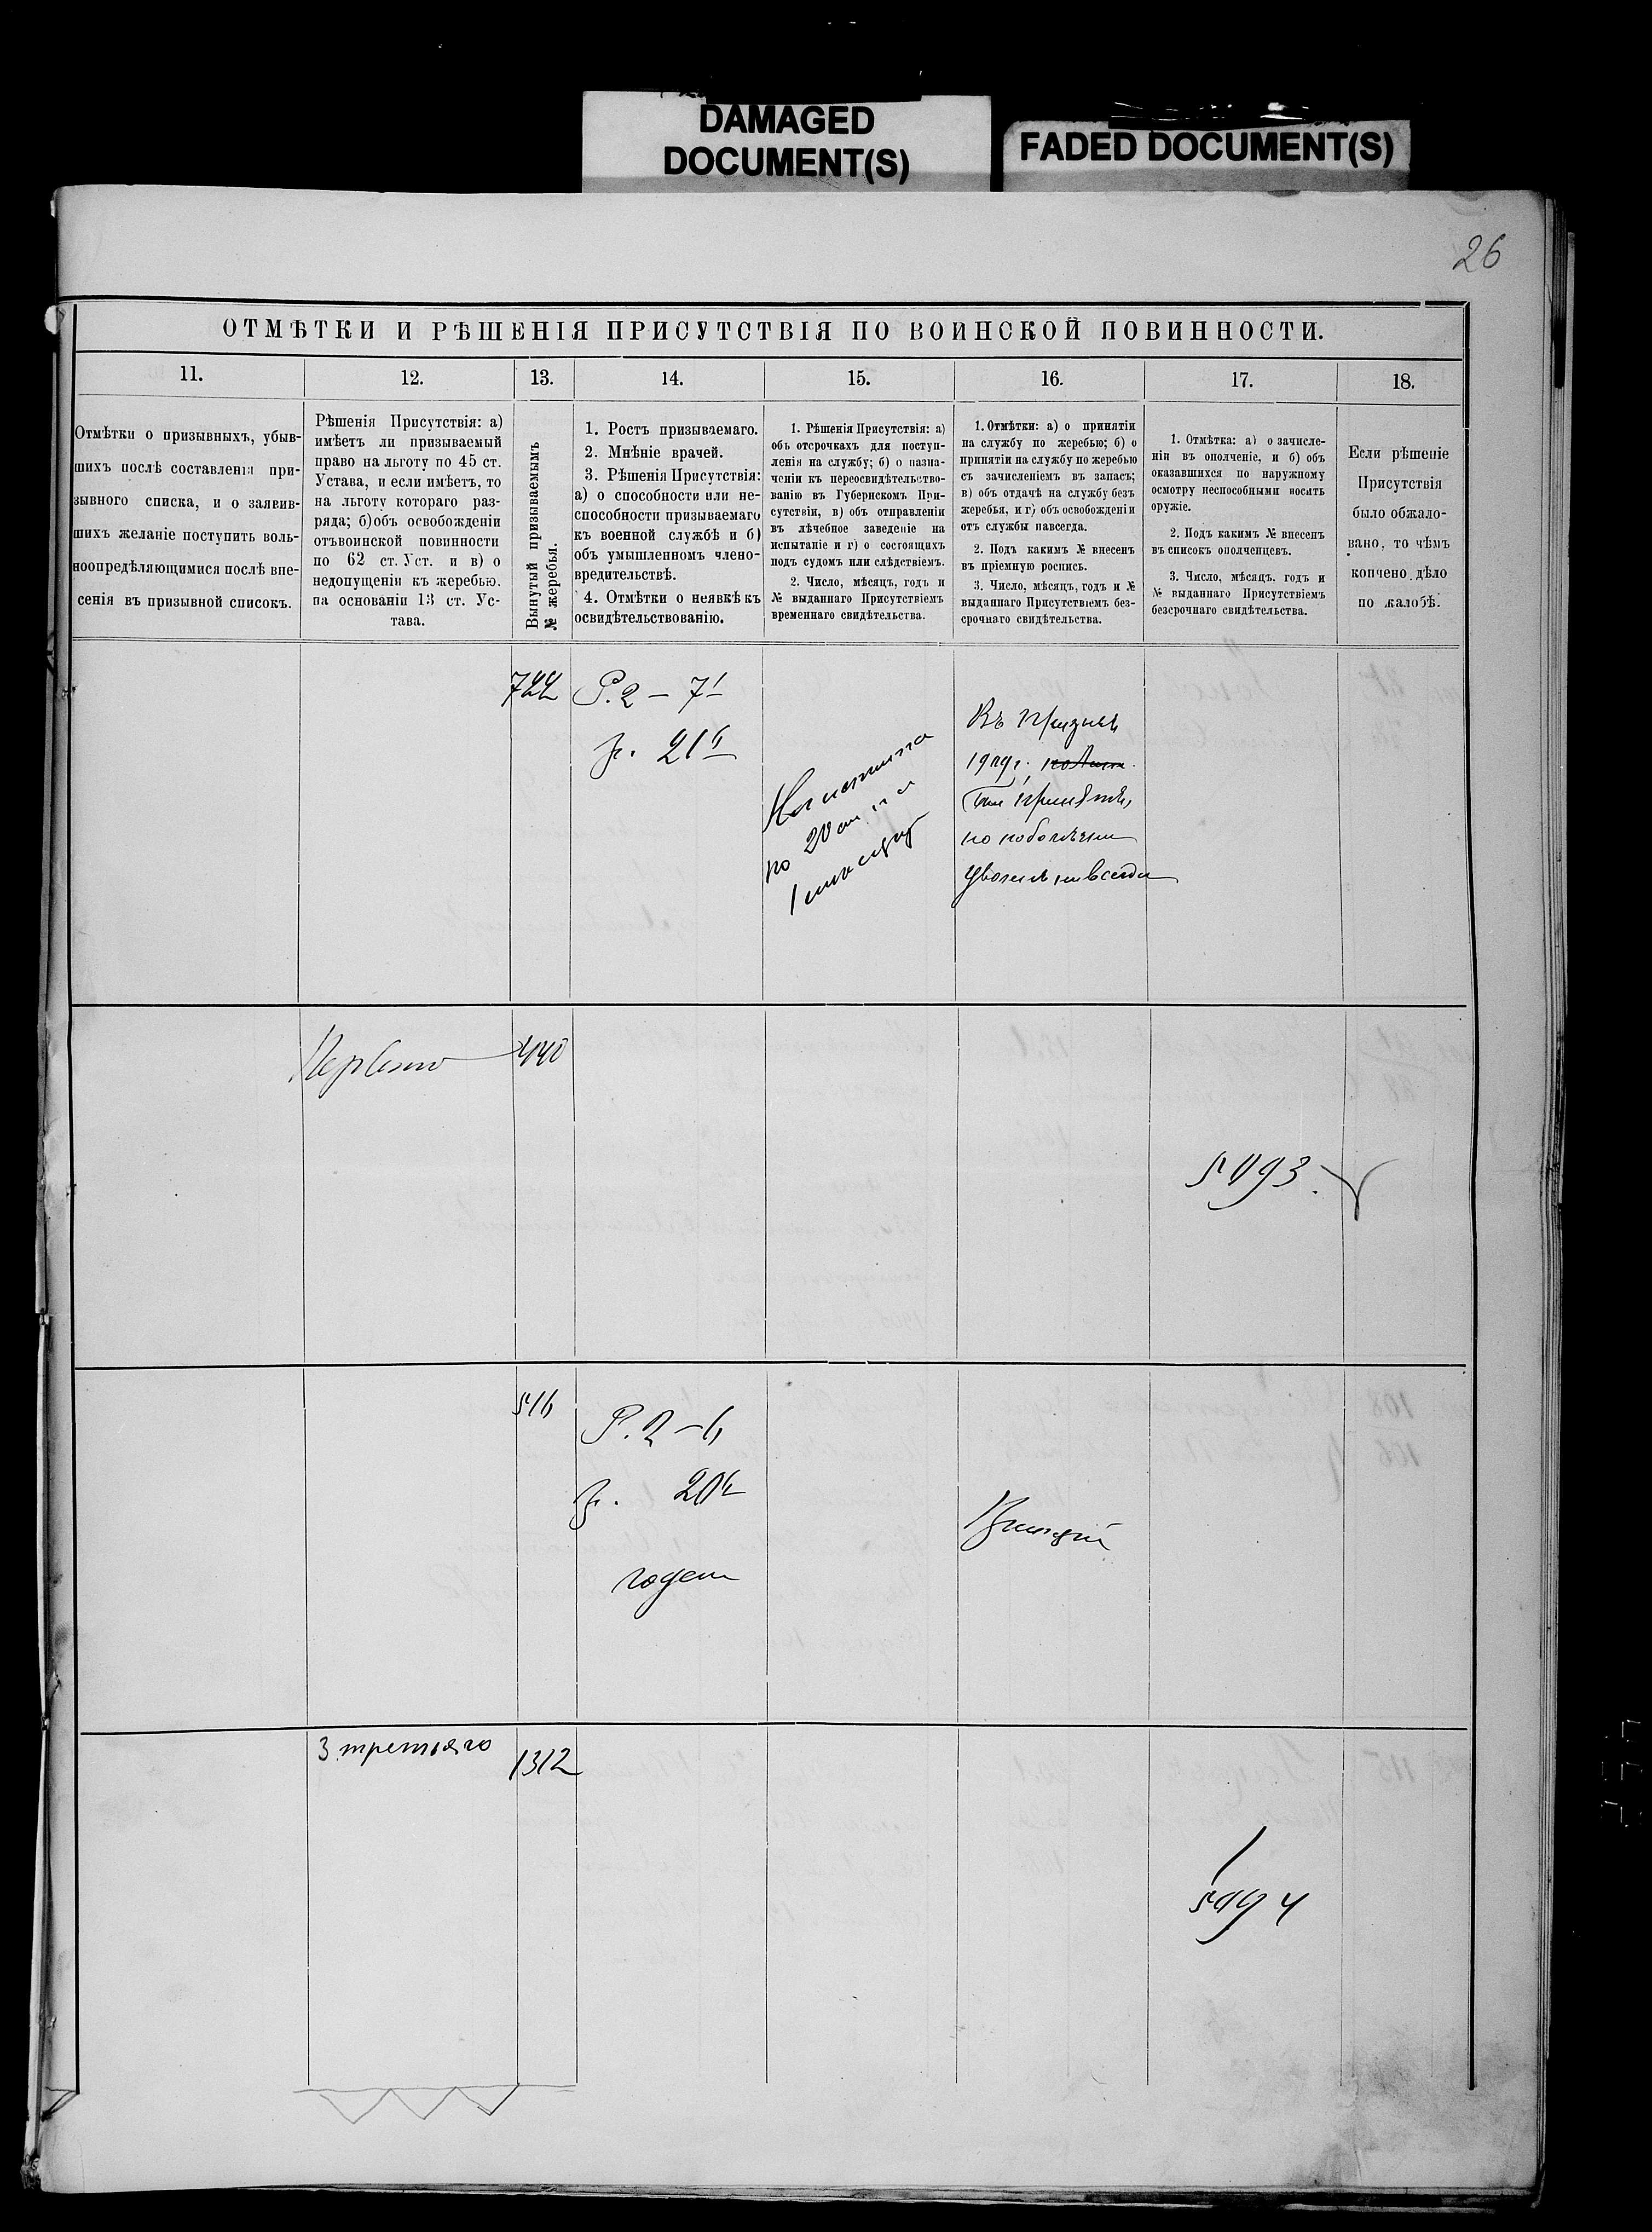 DAMAGED
DOCUMENT(S)
FADED DOCUMENT(S)
26
ОТМѢТКИ И РѢШЕНІЯ ПРИСУТСТВІЯ ПО ВОИНСКОЙ ПОВИННОСТИ.
11.
12.
13.
14.
15.
16.
17.
18.
Отмѣтки о призывныхъ, убыв-
шихъ послѣ составленія при-
зывного списка, и о заявив-
шихъ желаніе поступить воль-
ноопредѣляющимися послѣ вне-
сенія въ призывной списокъ.
Рѣшенія Присутствія: а)
имѣетъ ли призываемый
право на льготу по 45 ст.
Устава, и если имѣетъ, то
на льготу котораго раз-
ряда; б) объ освобожденіи
отъ воинской повинности
по 62 ст. Уст. и в) о
недопущеніи къ жеребью.
на основаніи 13 ст. Ус-
тава.
Вынутый призываемымъ
№ жеребья.
1. Ростъ призываемаго.
2. Мнѣніе врачей.
3. Рѣшенія Присутствія:
а) о способности или не-
способности призываемаго
къ военной службѣ и б)
объ умышленномъ члено-
вредительствѣ.
4. Отмѣтки о неявкѣ къ
освидѣтельствованію.
1. Рѣшенія Присутствія: а)
объ отсрочкахъ для поступ-
ленія на службу; б) о назна-
ченіи къ переосвидѣтельство-
ванію въ Губернскомъ При-
сутствіи, в) объ отправленіи
въ лѣчебное заведеніе на
испытаніе и г) о состоящихъ
подъ судомъ или слѣдствіемъ.
2. Число, мѣсяцъ, годъ и
№ выданнаго Присутствіемъ
временнаго свидѣтельства.
1. Отмѣтки: а) о принятіи
на службу по жеребью; б) о
принятіи на службу по жеребью
съ зачисленіемъ въ запасъ;
в) объ отдачѣ на службу безъ
жеребья, и г) объ освобожденіи
отъ службы навсегда.
2. Подъ какимъ № внесенъ
въ пріемную роспись.
3. Число, мѣсяцъ, годъ и №
выданнаго Присутствіемъ без-
срочнаго свидѣтельства.
1. Отмѣтка: а) о зачисле-
ніи въ ополченіе, и б) объ
оказавшихся по наружному
осмотру неспособными носить
оружіе.
2. Подъ какимъ № внесенъ
въ списокъ ополченцевъ.
3. Число, мѣсяцъ, годъ и
№ выданнаго Присутствіемъ
безсрочнаго свидѣтельства.
Если рѣшеніе
Присутствія
было обжало-
вано, то чѣмъ
кончено дѣло
по жалобѣ.
Р. 2 – 7
по
Въ призывъ
уволенъ навсегда
440
Р. 2 – 6
годенъ
3 третьяго
1312